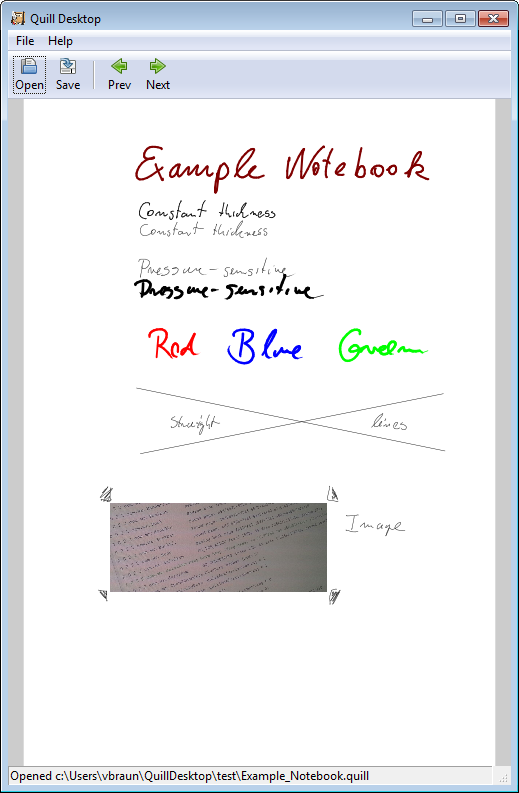 Quill Desktop
File Help
Open Save Prev Next
Example Notebook
Constant thickness
Constant thickness
Pressure-sensitive
Pressure-sensitive
Red Blue Green
Straight lines
Image
Opened c:\Users\vbraun\QuillDesktop\test\Example_Notebook.quill